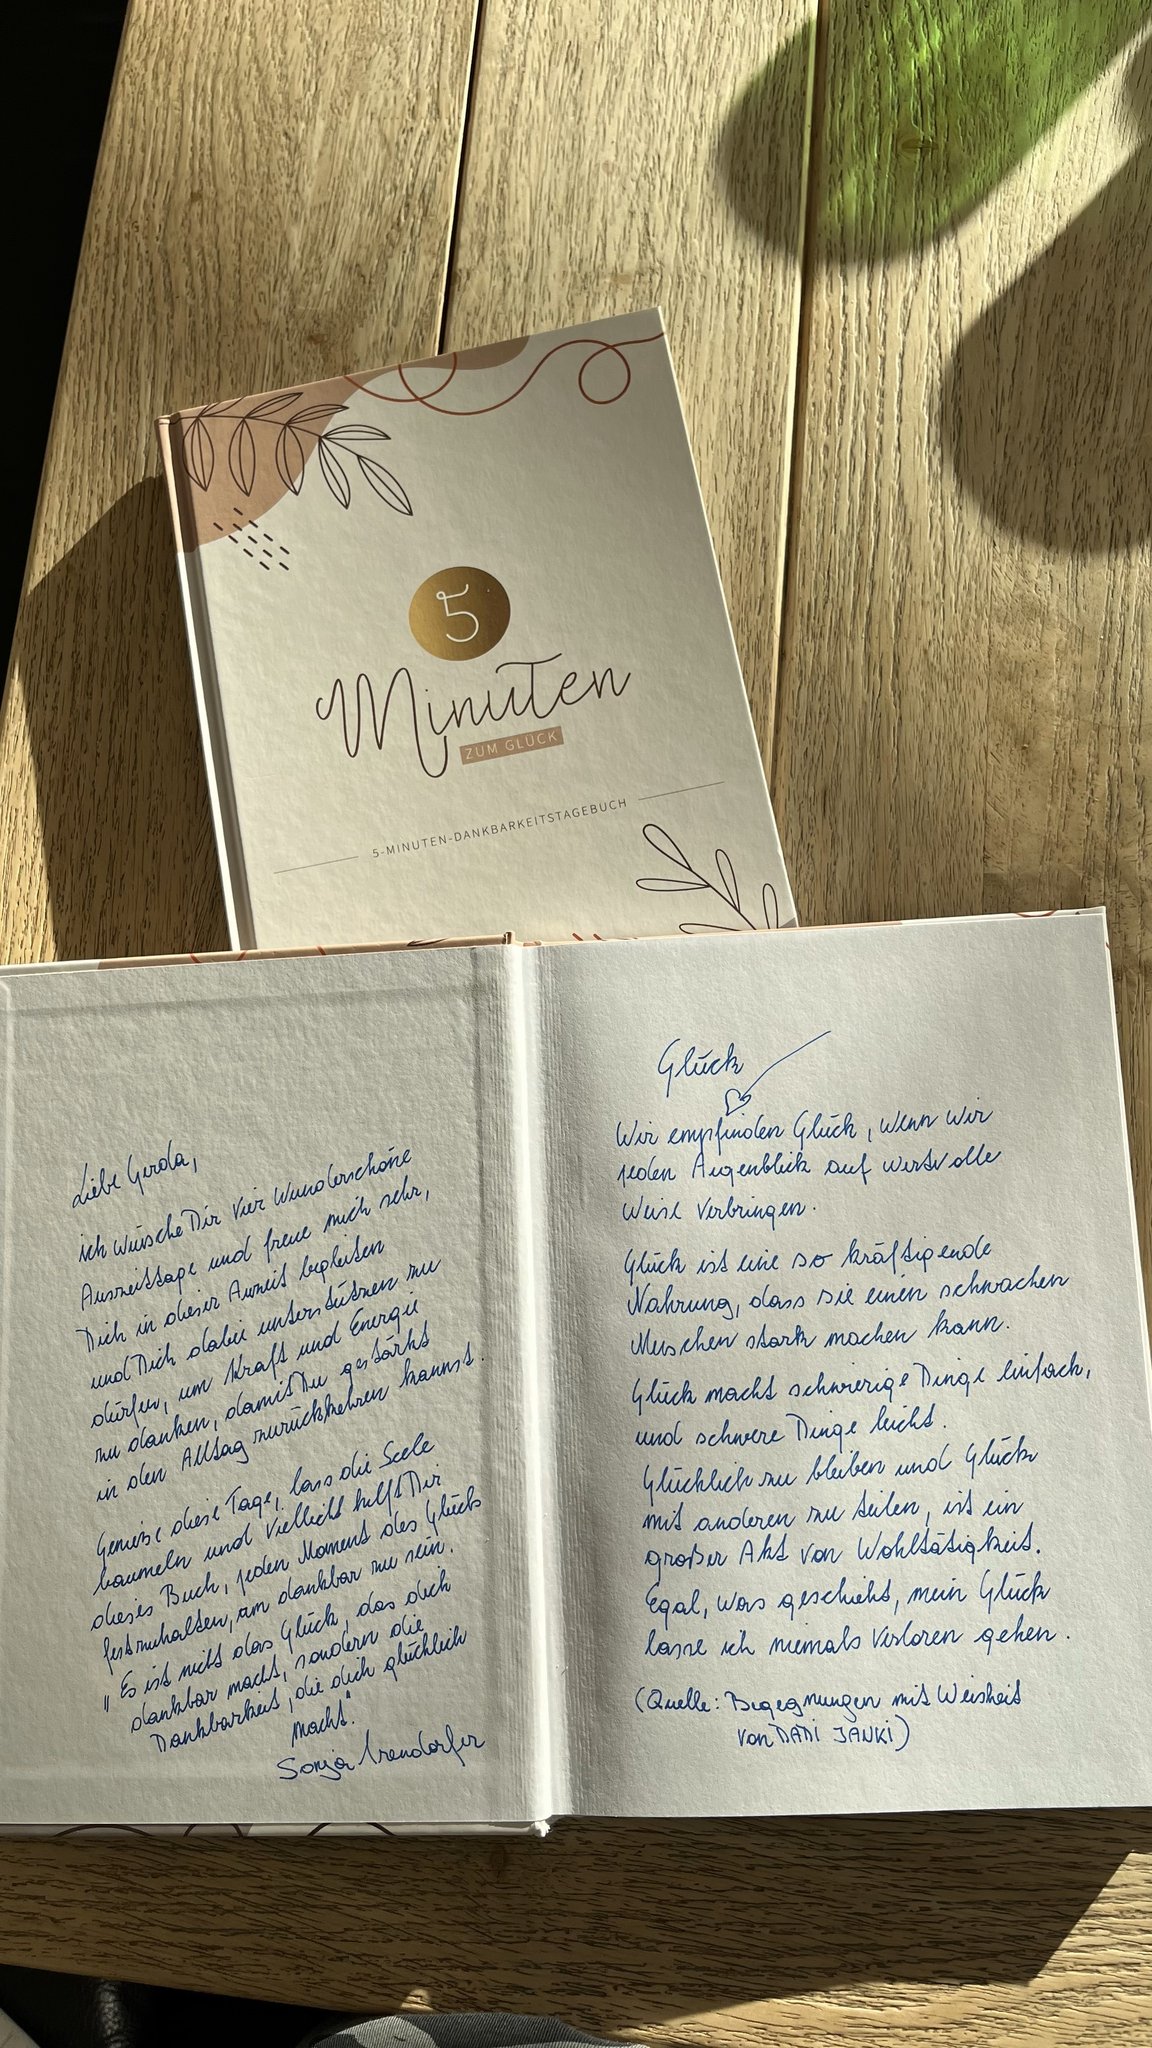 5
Minuten
ZUM GLÜCK
5-MINUTEN-DANKBARKEITSTAGEBUCH
Liebe Gerda,
ich wünsche Dir vier wunderschöne
Auszeittage und freue mich sehr,
Dich in dieser Auszeit begleiten
und Dich dabei unterstützen zu
dürfen, um Kraft und Energie
zu danken, damit Du gestärkt
in den Alltag zurückkehren kannst.
Genieße diese Tage, lass die Seele
baumeln und vielleicht hilft Dir
dieses Buch, jeden Moment des Glücks
festzuhalten, um dankbar zu sein.
"Es ist nicht das Glück, das dich
dankbar macht, sondern die
Dankbarkeit, die dich glücklich
macht."
Sonja
Glück
Wir empfinden Glück, wenn wir
jeden Augenblick auf wertvolle
Weise verbringen.
Glück ist eine so kräftigende
Nahrung, dass sie einen schwachen
Menschen stark machen kann.
Glück macht schwierige Dinge einfach,
und schwere Dinge leicht.
Glücklich zu bleiben und Glück
mit anderen zu teilen, ist ein
großer Akt von Wohltätigkeit.
Egal, was geschieht, mein Glück
lasse ich niemals verloren gehen.
(Quelle: Begegnungen mit Weisheit
von DADI JANKI)